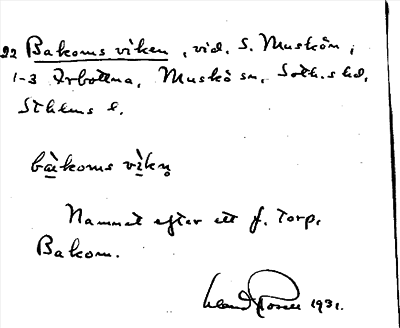 22 Bakoms viken, vid S. Muskön,
1-3 Arbottna, Muskö sn, Soth.s hd,
Sthlms l.
bàkoms vìkn̥
Namnet efter ett f. torp,
Bakom.
1931.